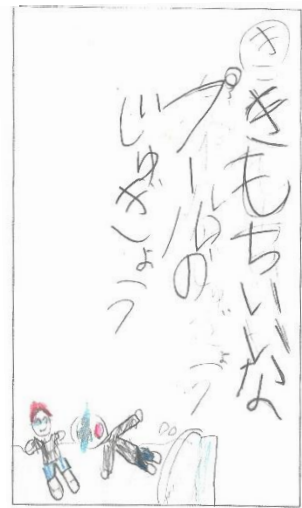 き
きもちいいな
プールの
じゅぎょう